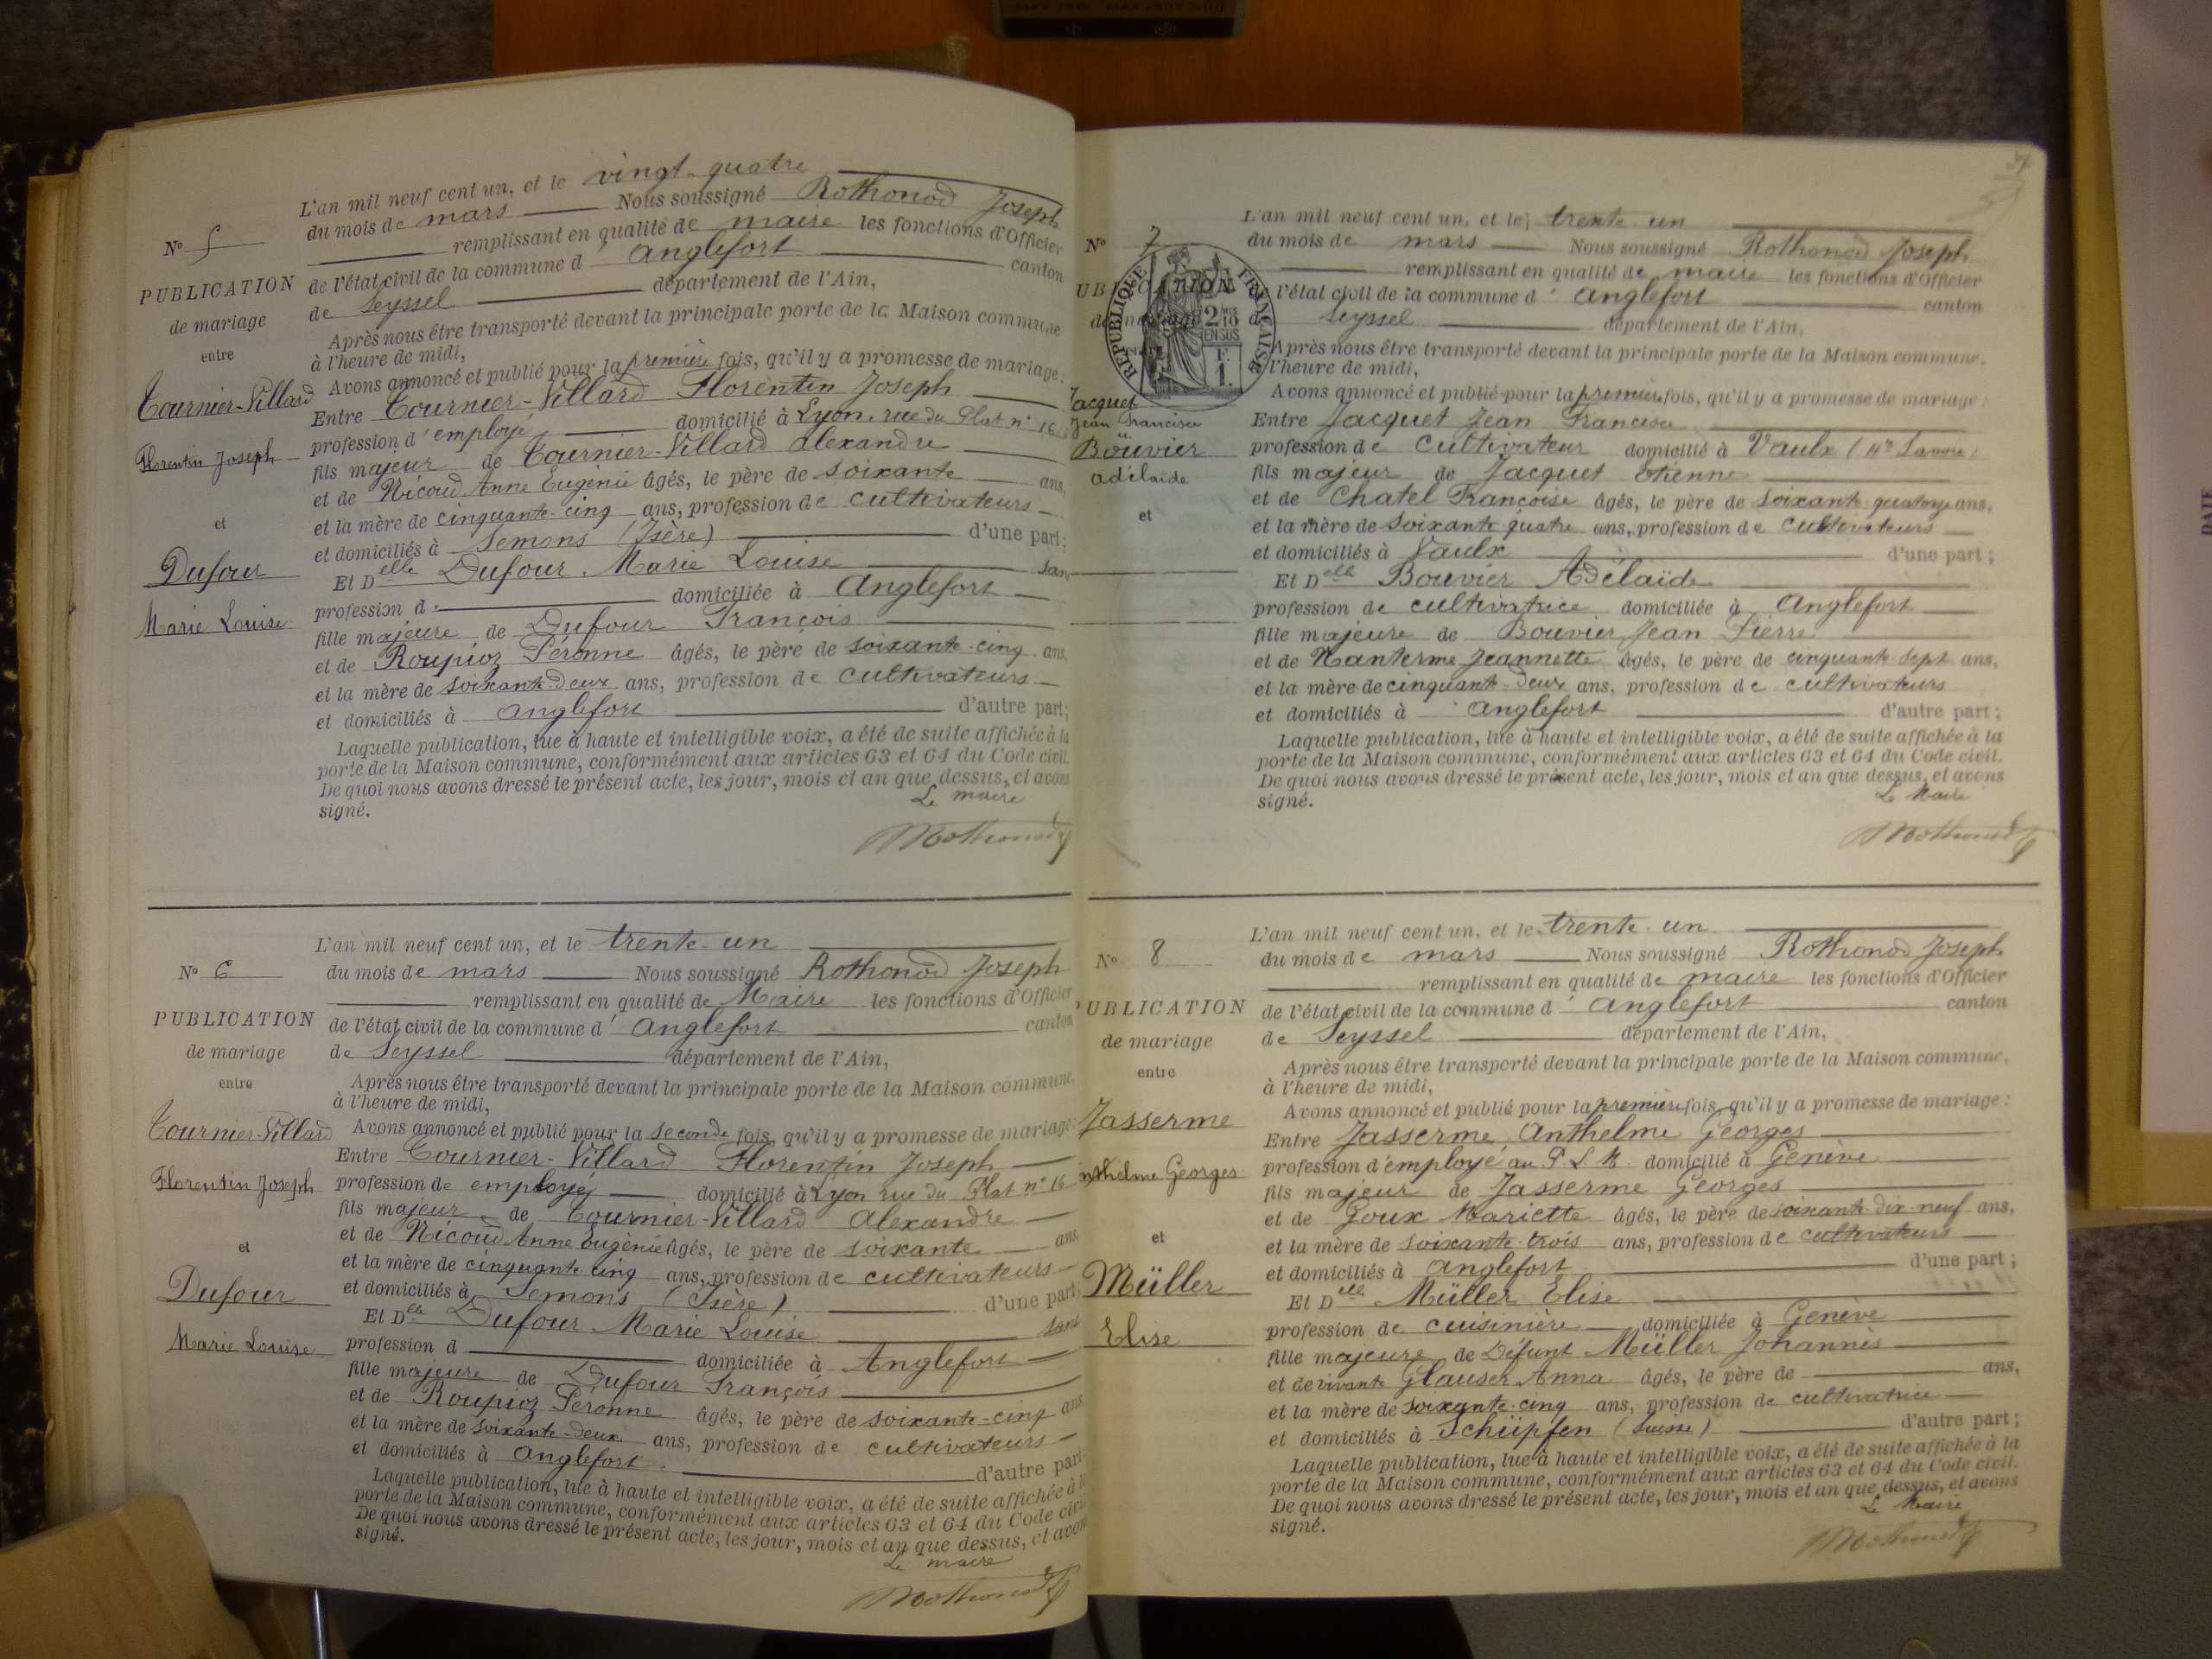 L'an mil neuf cent un, et le vingt-quatre
du mois de mars Nous soussigné Rothonod Joseph
remplissant en qualité de maire les fonctions d'Officier
de l'état civil de la commune d'Anglefort canton
de Seyssel département de l'Ain,
Après nous être transporté devant la principale porte de la Maison commune
à l'heure de midi,
Avons annoncé et publié pour la première fois, qu'il y a promesse de mariage :
Entre Tournier-Villard Florentin Joseph
profession d'employé domicilié à Lyon, rue du Plat n° 16
fils majeur de Tournier-Villard Alexandre
et de Nicoud Anne Eugénie âgés, le père de soixante ans,
et la mère de cinquante-cinq ans, profession de cultivateurs
et domiciliés à Semons (Isère) d'une part;
Et Delle Dufour Marie Louise sans
profession d domiciliée à Anglefort
fille majeure de Dufour François
et de Roupioz Péronne âgés, le père de soixante-cinq ans,
et la mère de soixante-deux ans, profession de cultivateurs
et domiciliés à Anglefort d'autre part;
Laquelle publication, lue à haute et intelligible voix, a été de suite affichée à la
porte de la Maison commune, conformément aux articles 63 et 64 du Code civil.
De quoi nous avons dressé le présent acte, les jour, mois et an que dessus, et avons
signé.
Le maire
Rothonod
N° 5
PUBLICATION
de mariage
entre
Tournier-Villard
Florentin Joseph
et
Dufour
Marie Louise
L'an mil neuf cent un, et le trente-un
du mois de mars Nous soussigné Rothonod Joseph
remplissant en qualité de Maire les fonctions d'Officier
de l'état civil de la commune d'Anglefort canton
de Seyssel département de l'Ain,
Après nous être transporté devant la principale porte de la Maison commune,
à l'heure de midi,
Avons annoncé et publié pour la seconde fois, qu'il y a promesse de mariage :
Entre Tournier-Villard Florentin Joseph
profession de employé domicilié à Lyon rue du Plat n° 16
fils majeur de Tournier-Villard Alexandre
et de Nicoud Anne Eugénie âgés, le père de soixante ans,
et la mère de cinquante cinq ans, profession de cultivateurs
et domiciliés à Semons (Isère) d'une part
Et Delle Dufour Marie Louise sans
profession d domiciliée à Anglefort
fille majeure de Dufour François
et de Roupioz Péronne âgés, le père de soixante-cinq ans
et la mère de soixante-deux ans, profession de cultivateurs
et domiciliés à Anglefort d'autre part
Laquelle publication, lue à haute et intelligible voix, a été de suite affichée à la
porte de la Maison commune, conformément aux articles 63 et 64 du Code civil
De quoi nous avons dressé le présent acte, les jour, mois et an que dessus, et avons
signé.
Le maire
Rothonod
N° 6
PUBLICATION
de mariage
entre
Tournier-Villard
Florentin Joseph
et
Dufour
Marie Louise
L'an mil neuf cent un, et le trente un
du mois de mars Nous soussigné Rothonod Joseph
remplissant en qualité de maire les fonctions d'Officier
l'état civil de la commune d'Anglefort canton
de Seyssel département de l'Ain,
Après nous être transporté devant la principale porte de la Maison commune,
l'heure de midi,
Avons annoncé et publié pour la première fois, qu'il y a promesse de mariage :
Entre Jacquet Jean Francisu
profession de cultivateur domicilié à Vaulx (Hte Savoie)
fils majeur de Jacquet Etienne
et de Chatel Françoise âgés, le père de soixante quatorze ans,
et la mère de soixante-quatre ans, profession de cultivateurs
et domiciliés à Vaulx d'une part ;
Et Delle Bouvier Adélaïde
profession de cultivatrice domiciliée à Anglefort
fille majeure de Bouvier Jean Pierre
et de Nanterme Jeannette âgés, le père de cinquante-sept ans,
et la mère de cinquante-deux ans, profession de cultivateurs
et domiciliés à Anglefort d'autre part ;
Laquelle publication, lue à haute et intelligible voix, a été de suite affichée à la
porte de la Maison commune, conformément aux articles 63 et 64 du Code civil.
De quoi nous avons dressé le présent acte, les jour, mois et an que dessus, et avons
signé.
Le Maire
Rothonod
N° 7
UBLICATION
de mariage
RÉPUBLIQUE FRANÇAISE
2/10
EN SUS
F.
1.
Jacquet
Jean Francisu
Bouvier
Adélaïde
et
L'an mil neuf cent un, et le trente-un
du mois de mars Nous soussigné Rothonod Joseph
remplissant en qualité de maire les fonctions d'Officier
de l'état civil de la commune d'Anglefort canton
de Seyssel département de l'Ain,
Après nous être transporté devant la principale porte de la Maison commune,
à l'heure de midi,
Avons annoncé et publié pour la première fois, qu'il y a promesse de mariage :
Entre Jasserme Anthelme Georges
profession d'employé au P. L. M. domicilié à Genève
fils majeur de Jasserme Georges
et de Goux Mariette âgés, le père de soixante-dix-neuf ans,
et la mère de soixante-trois ans, profession de cultivateurs
et domiciliés à Anglefort d'une part ;
Et Delle Müller Elise
profession de cuisinière domiciliée à Genève
fille majeure de Défunt Müller Johannès
et de vivante Glauser Anna âgés, le père de ans,
et la mère de soixante-cinq ans, profession de cultivatrice
et domiciliés à Schüpfen (Suisse) d'autre part ;
Laquelle publication, lue à haute et intelligible voix, a été de suite affichée à la
porte de la Maison commune, conformément aux articles 63 et 64 du Code civil.
De quoi nous avons dressé le présent acte, les jour, mois et an que dessus, et avons
signé.
Le Maire
Rothonod
N° 8
PUBLICATION
de mariage
entre
Jasserme
nthelme Georges
et
Müller
Elise
DATE